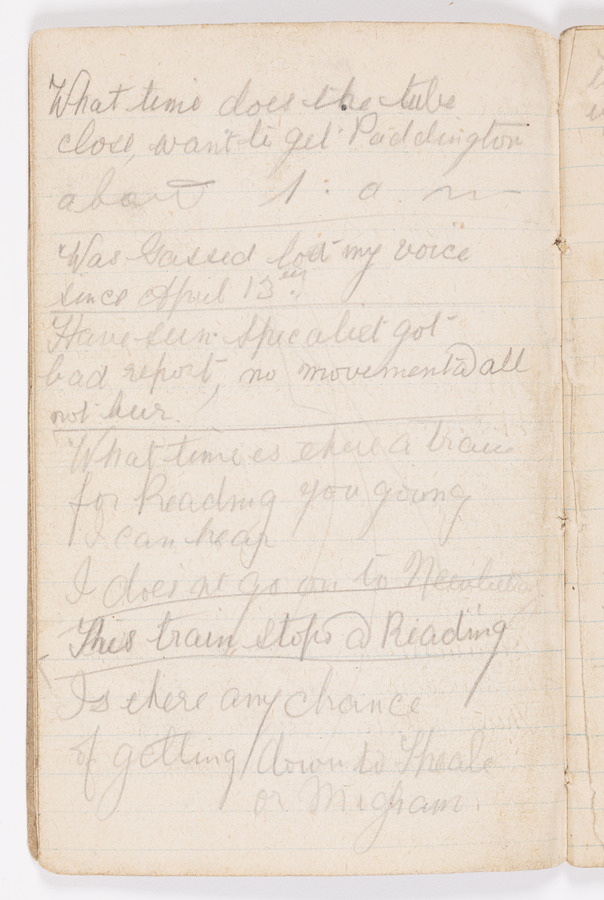 What time does the tube
close, want to get Paddington
about 1: a. m
Was Gassed lost my voice
since April 13
Have seen specalist got
bad report, no movement @ all
not here.
What time is there a train
for Reading you going
I can hear
I does nt go on to Newbury
This train stops @ Reading
Is there any chance
of getting down to Theale
or Migham.